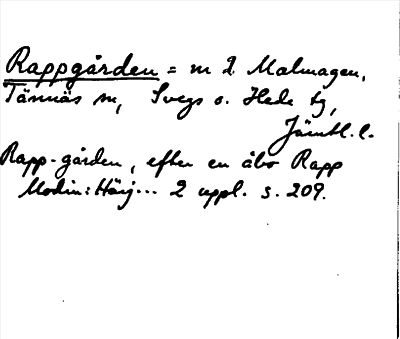 Rappgården = m 2 Malmagen,
Tännäs sn, Svegs o. Hede tg,
Jämtl. l.
Rapp-gården, efter en åbo Rapp
Modin: Härj... 2 uppl. s. 209.